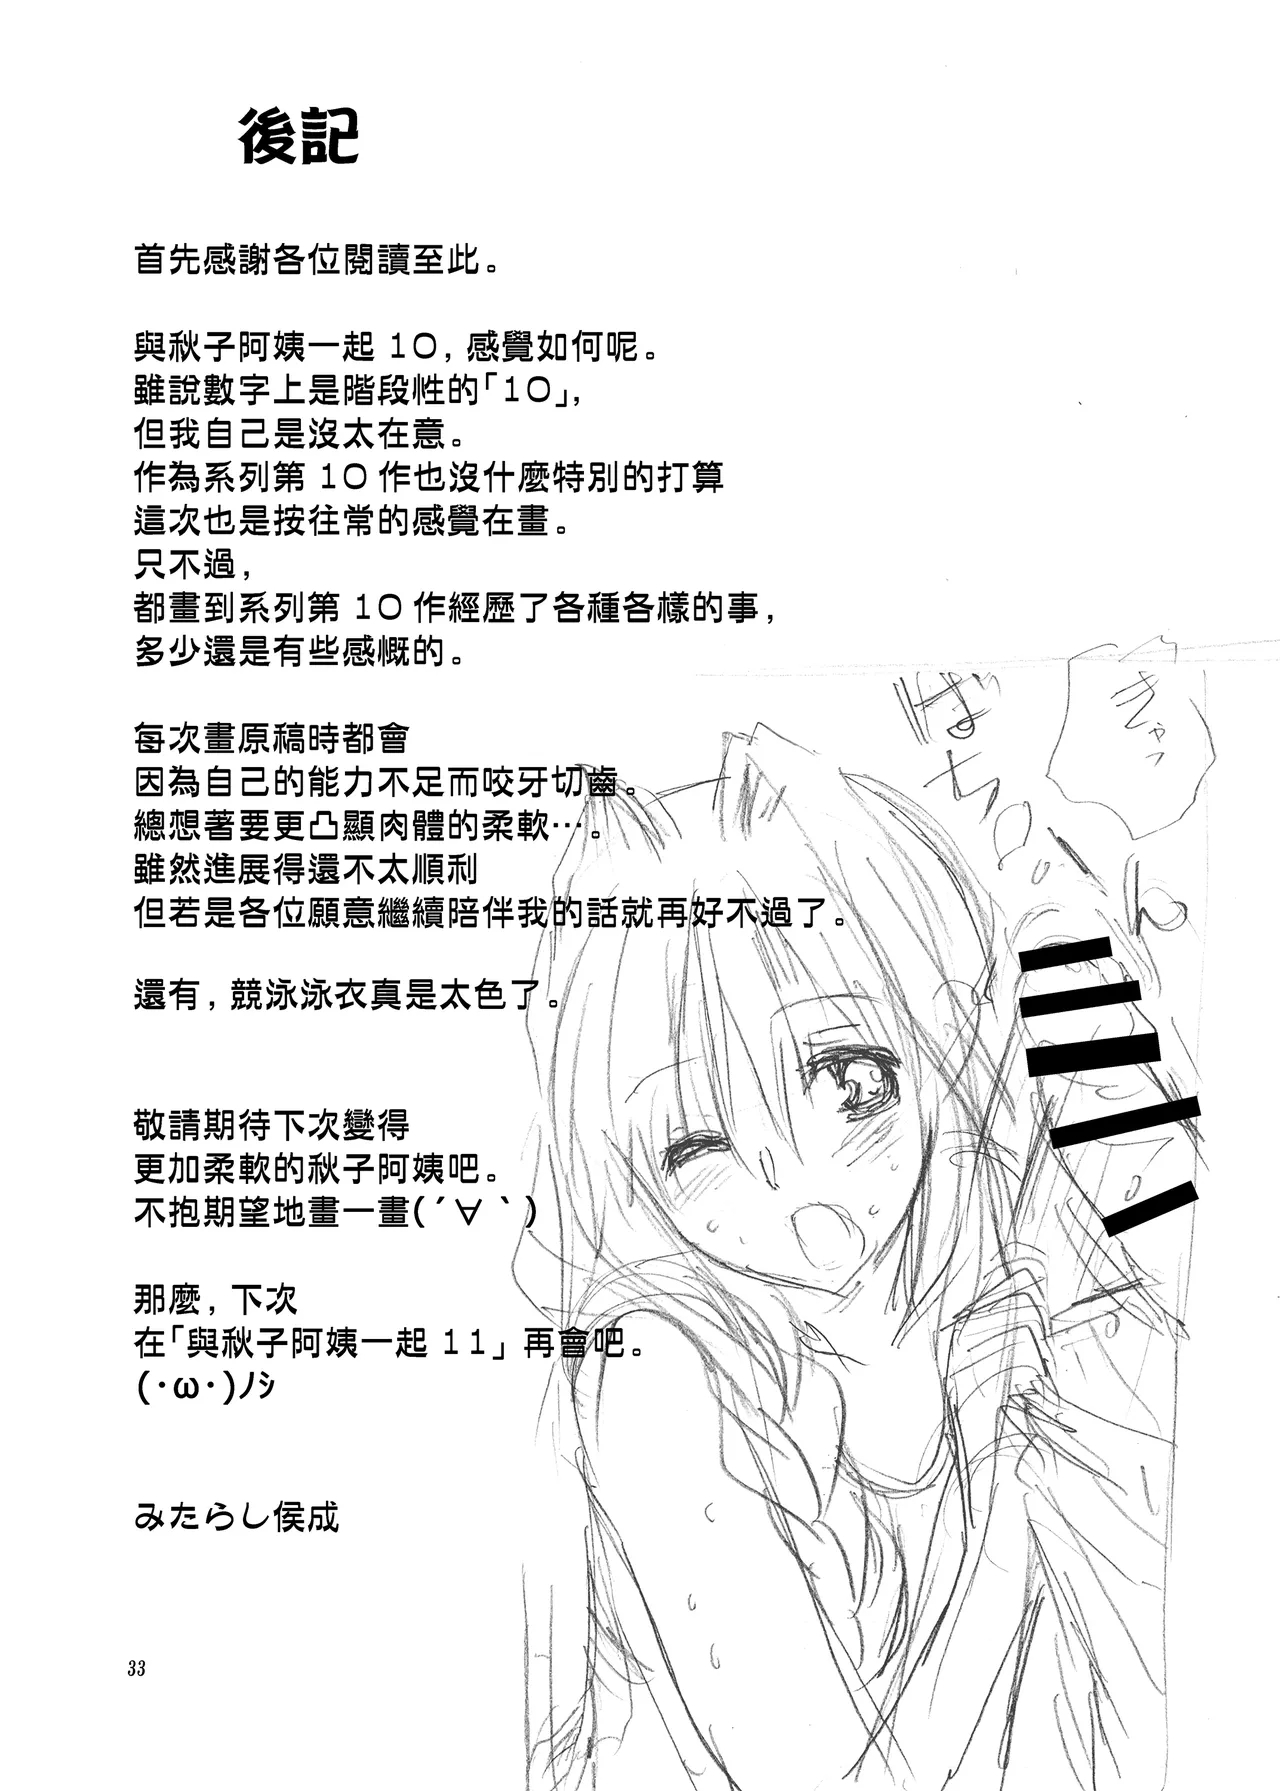 後記
首先感謝各位閱讀至此。
與秋子阿姨一起 10，感覺如何呢。
雖說數字上是階段性的「10」，
但我自己是沒太在意。
作為系列第 10 作也沒什麼特別的打算
這次也是按往常的感覺在畫。
只不過，
都畫到系列第 10 作經歷了各種各樣的事，
多少還是有些感慨的。
每次畫原稿時都會
因為自己的能力不足而咬牙切齒。
總想著要更凸顯肉體的柔軟…。
雖然進展得還不太順利
但若是各位願意繼續陪伴我的話就再好不過了。
還有，競泳泳衣真是太色了。
敬請期待下次變得
更加柔軟的秋子阿姨吧。
不抱期望地畫一畫(´∀｀)
那麼，下次
在「與秋子阿姨一起 11」再會吧。
(･ω･)ﾉｼ
みたらし侯成
33
きゃっ